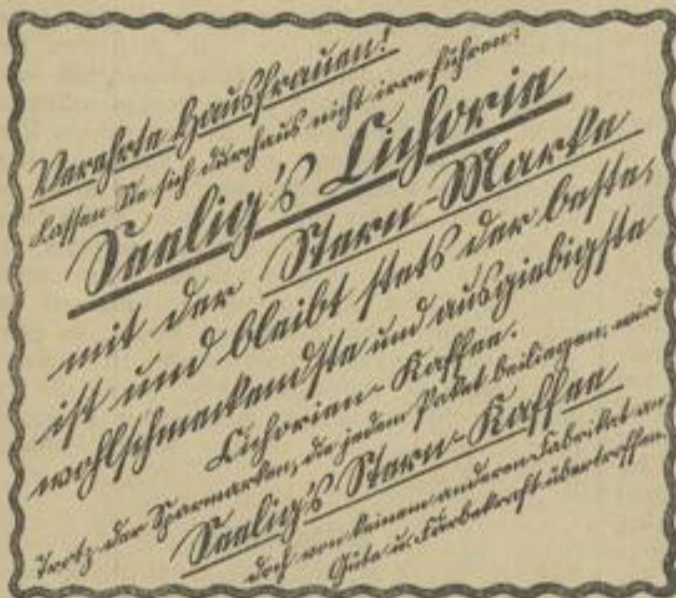 Verehrte Hausfrauen!
Lassen Sie sich durchaus nicht irre führen:
Seelig's Cichorie
mit der Stern-Marke
ist und bleibt stets der beste,
wohlschmeckendste und ausgiebigste
Cichorien-Kaffee.
Trotz der Sparmarken, die jedem Paket beiliegen, wird
Seelig's Stern-Kaffee
doch von keinem anderen Fabrikat an
Güte u. Färbekraft übertroffen.